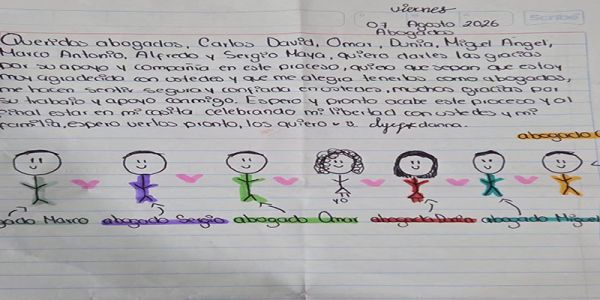 viernes
07 Agosto 2026
Scribe
Abogados
Queridos abogados, Carlos David, Omar, Dunia, Miguel Angel,
Marco Antonio, Alfredo y Sergio Maya, quiero darles las gracias
por su apoyo y compañia en este proceso, quiero que sepan que estoy
muy agradecida con ustedes y que me alegra tenerlos como abogados,
me hacen sentir segura y confiada en ustedes, muchas gracias por
su trabajo y apoyo conmigo. Espero y pronto acabe este proceso y al
final estar en mi casita celebrando mi libertad con ustedes y mi
familia, espero verlos pronto, los quiero
abogado
yo
gado Marco abogado Sergio abogado Omar abogada Dunia abogado Miguel